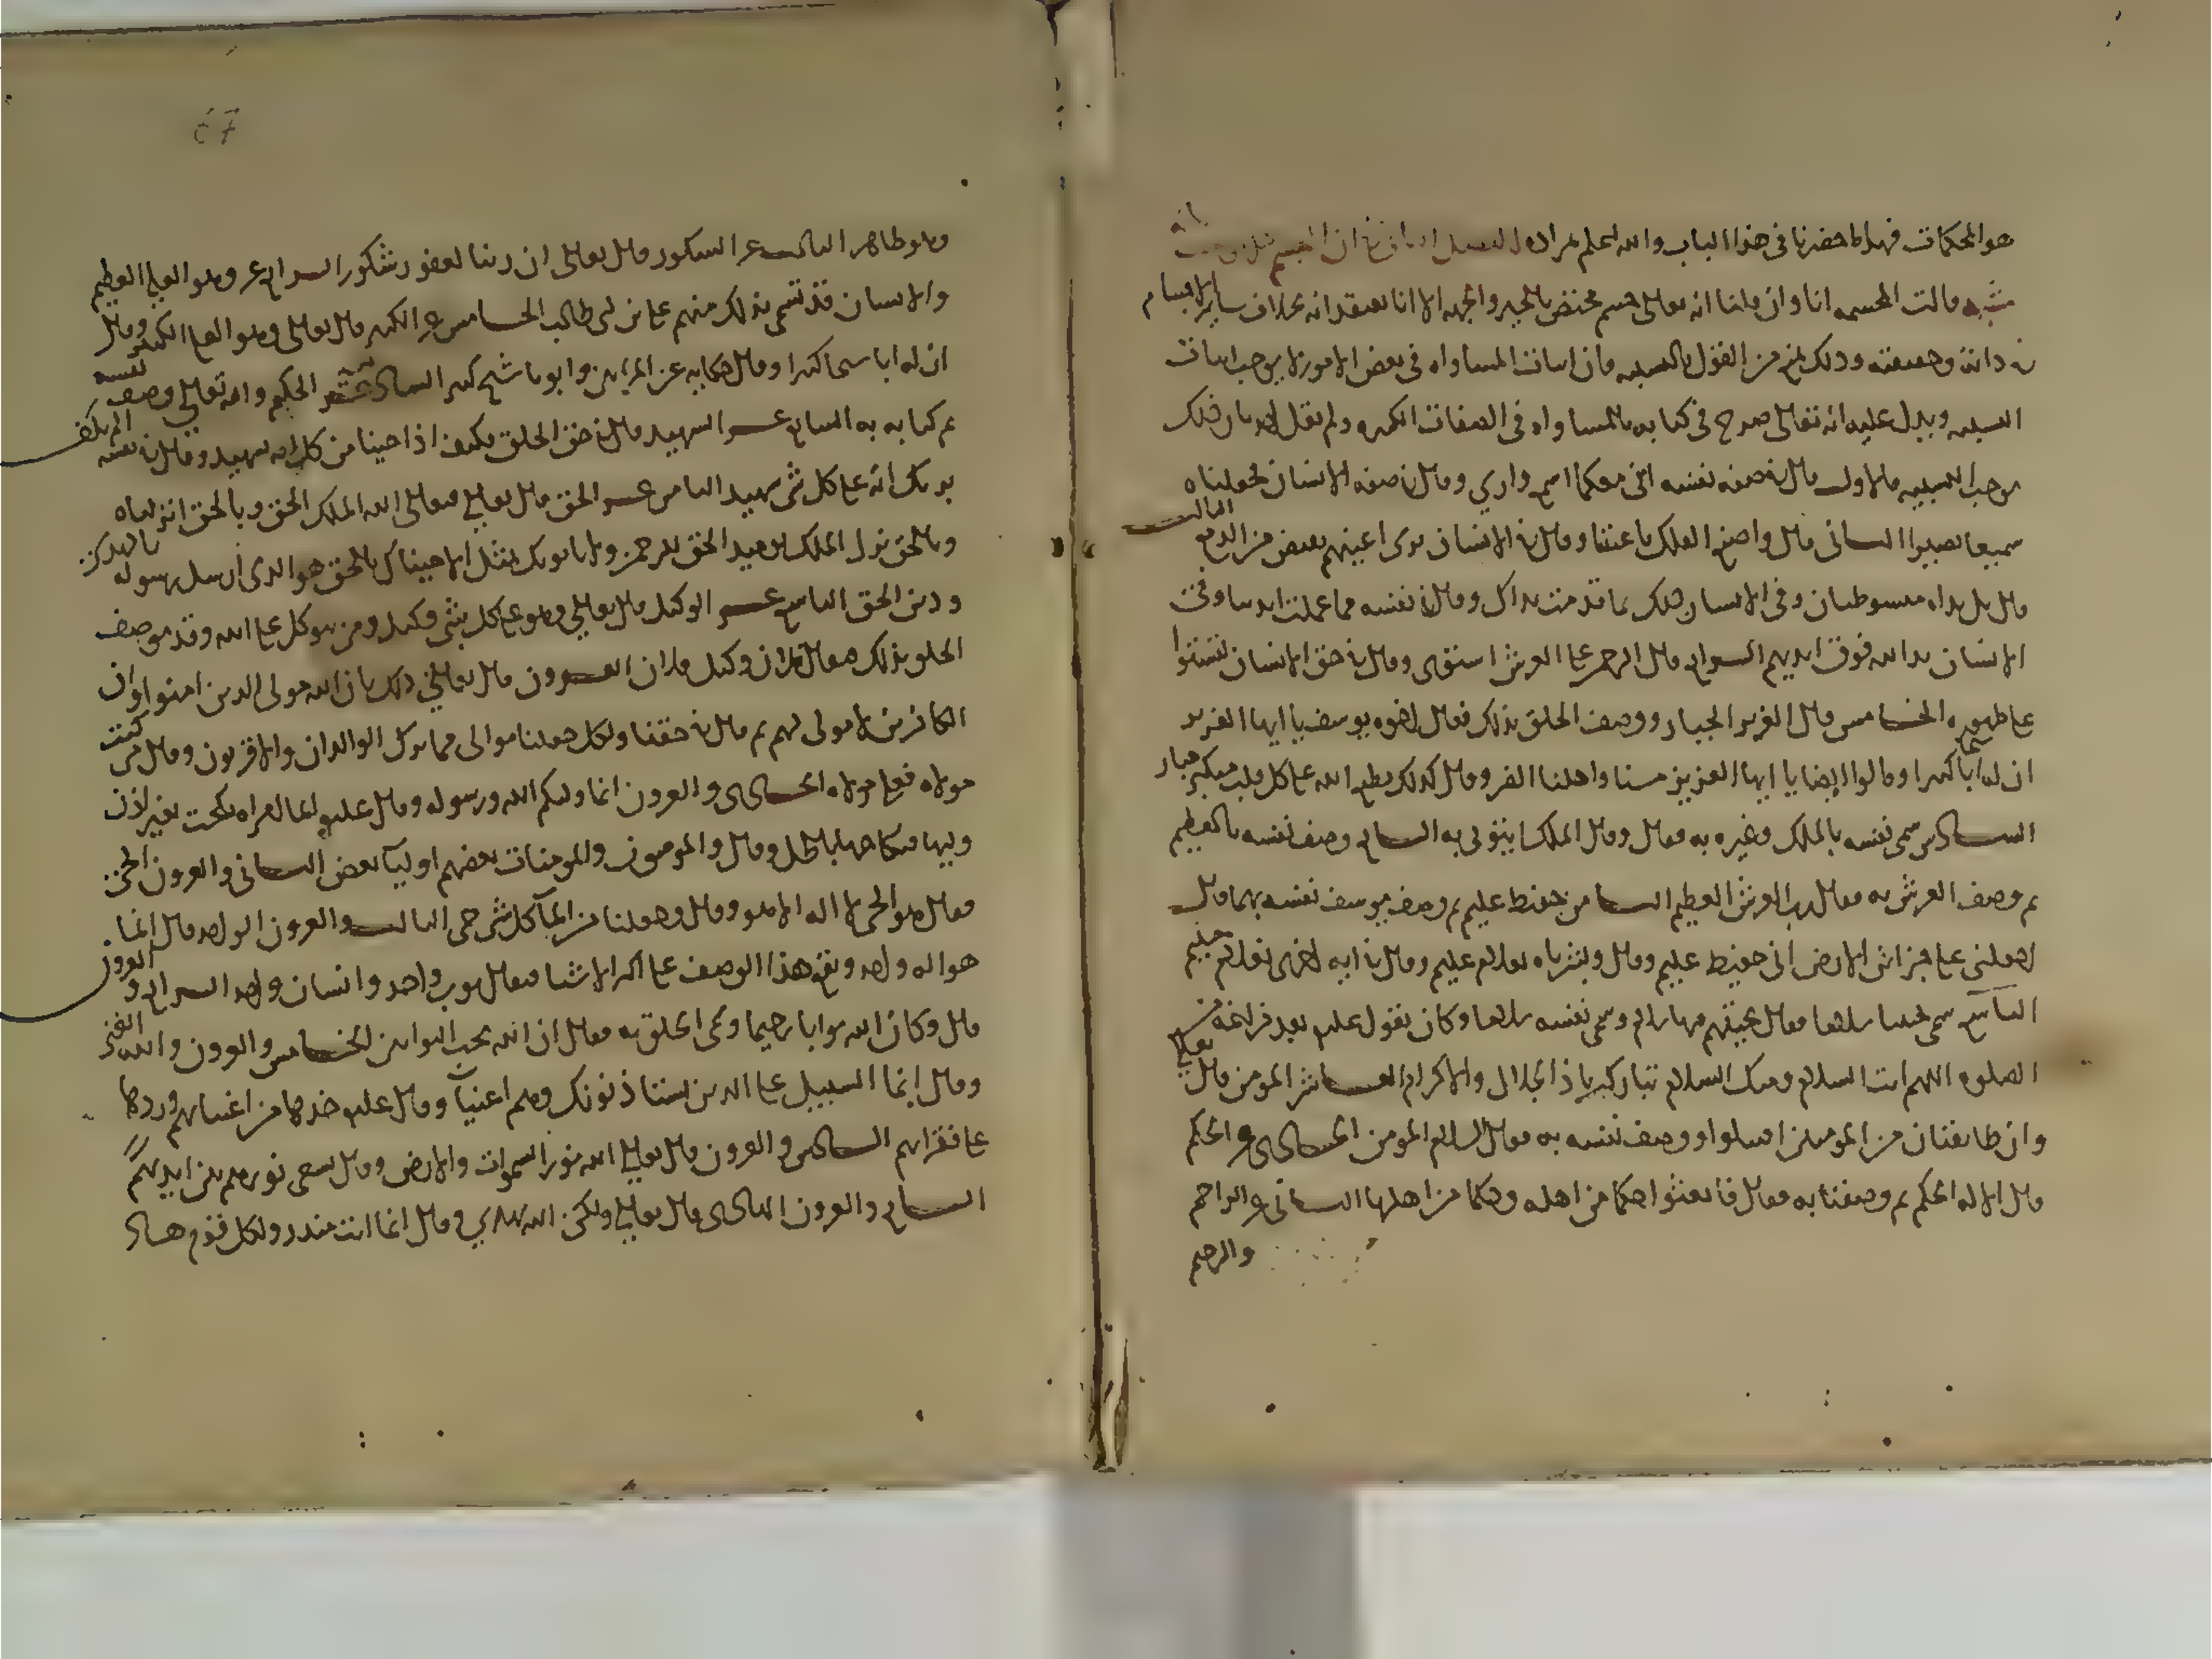 هو المحكمات فهذا ما حضرنا في هذا الباب والله اعلم بمراده الفصل الثاني في ان المجسم هل يوصف بانه
مشبه قالت المجسمة انا وان قلنا انه تعالى جسم مختص بالحيز والجهة الا انا نعتقد انه بخلاف ساير الاجسام
في ذاته وحقيقته وذلك يمنع من القول بالتشبيه فان اثبات المساواة في بعض الامور لا يوجب اثبات
التشبيه ويدل عليه انه تعالى صرح في كتابه بالمساواة في الصفات الكثيرة ولم يقل احد بان ذلك
يوجب التشبيه فالاول قال في صفة نفسه انني معكما اسمع واري وقال في صفة الانسان فجعلناه
سميعا بصيرا الثاني قال واصنع الفلك باعيننا وقال في الانسان تري اعينهم تفيض من الدمع الثالث
قال بل يداه مبسوطتان وفي الانسان ذلك بما قدمت يداك وقال في نفسه مما عملت ايدينا وفي
الانسان يد الله فوق ايديهم الرابع قال الرحمن علي العرش استوي وقال في حق الانسان لتستووا
علي ظهوره الخامس قال العزيز الجبار ووصف الخلق بذلك فقال اخوه يوسف يا ايها العزيز
ان له ابا شيخا كبيرا وقالوا ايضا يا ايها العزيز مسنا واهلنا الضر وقال كذلك يطبع الله علي كل قلب متكبر جبار
السادس سمي نفسه بالملك وغيره به فقال وقال الملك ايتوني به السابع وصف نفسه بالعظيم
ثم وصف العرش به فقال رب العرش العظيم الثامن حفيظ عليم ثم وصف يوسف نفسه بهما فقال
اجعلني علي خزائن الارض اني حفيظ عليم وقال وبشرناه بغلام عليم وقال في اية اخرى بغلام حليم
التاسع سمي تحيتنا سلاما فقال تحيتهم فيها سلام وسمي نفسه سلاما وكان يقول عليه السلام بعد فراغه من
الصلوة اللهم انت السلام ومنك السلام تباركت يا ذا الجلال والاكرام العاشر المومن قال تعالى
وان طائفتان من المومنين اقتتلوا ووصف نفسه به فقال السلام المومن الحادي عشر الحكم
قال الا له الحكم ثم وصفنا به فقال فابعثوا حكما من اهله وحكما من اهلها الثاني عشر الراحم
والرحيم
67
وهو ظاهر الثالث عشر الشكور قال تعالى ان ربنا لغفور شكور الرابع عشر وهو العلي العظيم
والانسان قد تسمى بذلك منهم علي بن ابي طالب الخامس عشر الكبير قال تعالى وهو العلي الكبير وقال
ان له ابا شيخا كبيرا وقال حكاية عن المراتين وابونا شيخ كبير السادس عشر الحكيم والله تعالى وصف نفسه
ثم كتابه به السابع عشر الشهيد قال في حق الخلق فكيف اذا جينا من كل امة بشهيد وقال في نفسه اولم يكف
بربك انه علي كل شي شهيد الثامن عشر الحق قال تعالى فتعالى الله الملك الحق وبالحق انزلناه
وبالحق نزل الملك يوميذ الحق للرحمن ولا ياتونك بمثل الا جيناك بالحق هو الذي ارسل رسوله بالهدى
ودين الحق التاسع عشر الوكيل قال تعالى وهو علي كل شي وكيل ومن يتوكل علي الله وقد يوصف
الخلق بذلك فيقال فلان وكيل فلان العشرون قال تعالى ذلك بان الله مولى الذين امنوا وان
الكافرين لا مولى لهم ثم قال في حقنا ولكل جعلنا موالي مما ترك الوالدان والاقربون وقال من كنت
مولاه فعلي مولاه الحادي والعشرون انما وليكم الله ورسوله وقال عليه السلام ايما امراة نكحت بغير اذن
وليها فنكاحها باطل وقال والمومنون والمومنات بعضهم اوليآ بعض الثاني والعشرون الحي
فقال هو الحي لا اله الا هو وقال وجعلنا من المآ كل شي حي الثالث والعشرون الواحد قال انما
هو اله واحد ويقع هذا الوصف علي اكثر الاشيا فيقال ثوب واحد وانسان واحد الرابع والعشرون
قال وكان الله توابا رحيما وسمى الخلق به فقال ان الله يحب التوابين الخامس والعشرون والله الغني
وقال انما السبيل علي الذين يستاذنونك وهم اغنيآ وقال عليه السلام خذها من اغنيائهم وردها
علي فقرائهم السادس والعشرون قال تعالى الله نور السموات والارض وقال يسعى نورهم بين ايديهم
السابع والعشرون الهادي قال تعالى ولكن الله يهدي وقال انما انت منذر ولكل قوم هاد